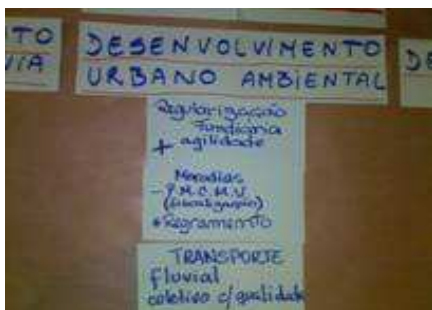 TO
VIA
DESENVOLVIMENTO
URBANO AMBIENTAL
DE
Regularização
Fundiária
+ agilidade
Moradias
- P.M.C.M.V.
(fiscalização)
*Regramento
TRANSPORTE
fluvial
coletivo c/qualidade